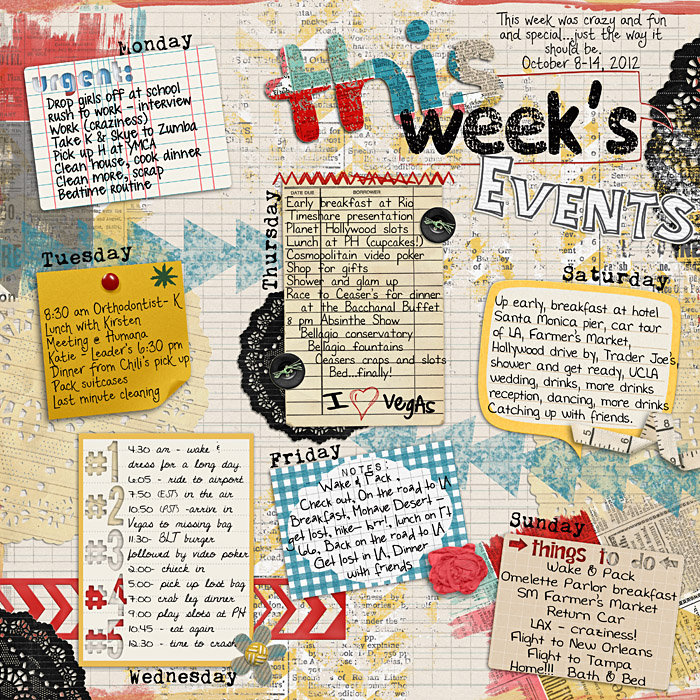 This week was crazy and fun
and special...just the way it
should be.
October 8-14, 2012
this
week's
EVENTS
Monday
urgent:
Drop girls off at school
Rush to work - interview
Work (craziness)
Take K & Skye to Zumba
Pick up H at YMCA
Clean house, cook dinner
Clean more, scrap
Bedtime routine
Tuesday
8:30 am Orthodontist- K
Lunch with Kirsten
Meeting @ Humana
Katie's Leader's 6:30 pm
Dinner from Chili's pick up
Pack suitcases
Last minute cleaning
Wednesday
#1
#2
#3
#4
#5
4:30 am - wake &
dress for a long day.
6:05 - ride to airport
7:50 (EST) in the air
10:50 (PST) -arrive in
Vegas to missing bag
11:30- BLT burger
followed by video poker
2:00- check in
5:00- pick up lost bag
7:00 crab leg dinner
9:00 play slots at PH
10:45 - eat again
12:30 - time to crash
Thursday
DATE DUE BORROWER
Early breakfast at Rio
Timeshare presentation
Planet Hollywood slots
Lunch at PH (cupcakes!)
Cosmopolitain video poker
Shop for gifts
Shower and glam up
Race to Ceaser's for dinner
at the Bacchanal Buffet
8 pm Absinthe Show
Bellagio conservatory
Bellagio fountains
Ceasers craps and slots
Bed...finally!
I Vegas
Friday
NOTES:
Wake & Pack,
Check out, On the road to LA
Breakfast, Mohave Desert -
get lost, hike- brr!, lunch on Rt
66, Back on the road to LA
Get lost in LA, Dinner
with friends
Saturday
Up early, breakfast at hotel
Santa Monica pier, car tour
of LA, Farmer's Market,
Hollywood drive by, Trader Joe's,
shower and get ready, UCLA
wedding, drinks, more drinks
reception, dancing, more drinks
Catching up with friends.
5 6 8
Sunday
things to do
Wake & Pack
Omelette Parlor breakfast
SM Farmer's Market
Return Car
LAX - craziness!
Flight to New Orleans
Flight to Tampa
Home!!! Bath & Bed